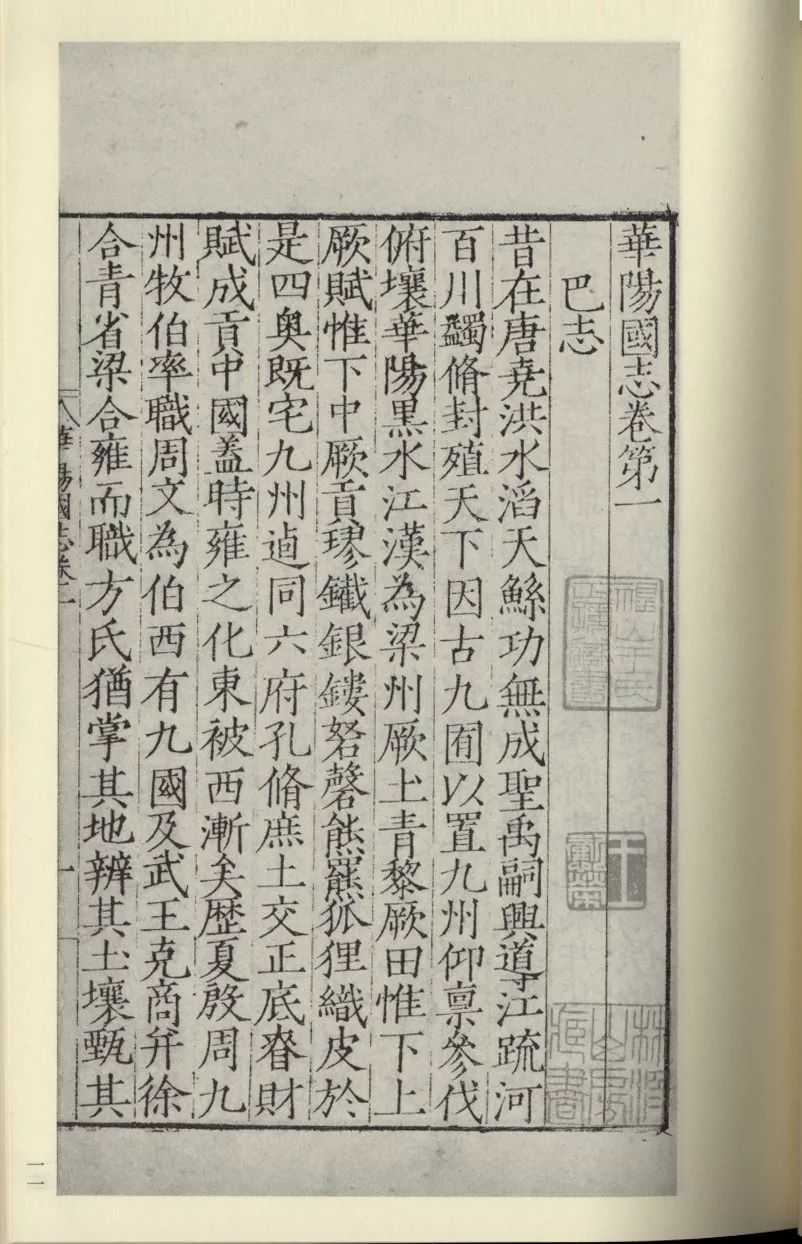 華陽國志卷第一
巴志
昔在唐堯洪水滔天鯀功無成聖禹嗣興導江疏河
百川蠲脩封殖天下因古九囿以置九州仰禀參伐
俯壤華陽黑水江漢為梁州厥土青黎厥田惟下上
厥賦惟下中厥貢璆鐵銀鏤砮磬熊羆狐狸織皮於
是四奥既宅九州逌同六府孔脩庶土交正底眘財
賦成貢中國蓋時雍之化東被西漸矣歷夏殷周九
州牧伯率職周文為伯西有九國及武王克商并徐
合青省梁合雍而職方氏猶掌其地辨其土壤甄其
華陽國志卷一
一
一一